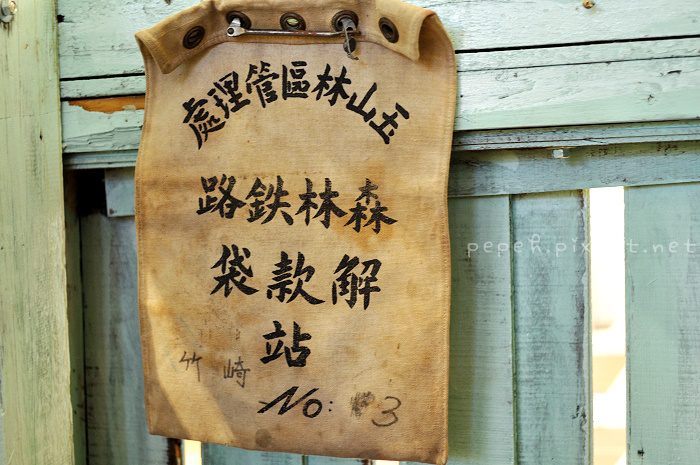 玉山林區管理處
森林鉄路
解款袋
站
竹崎
No: 3
pepeh.pixnet.net